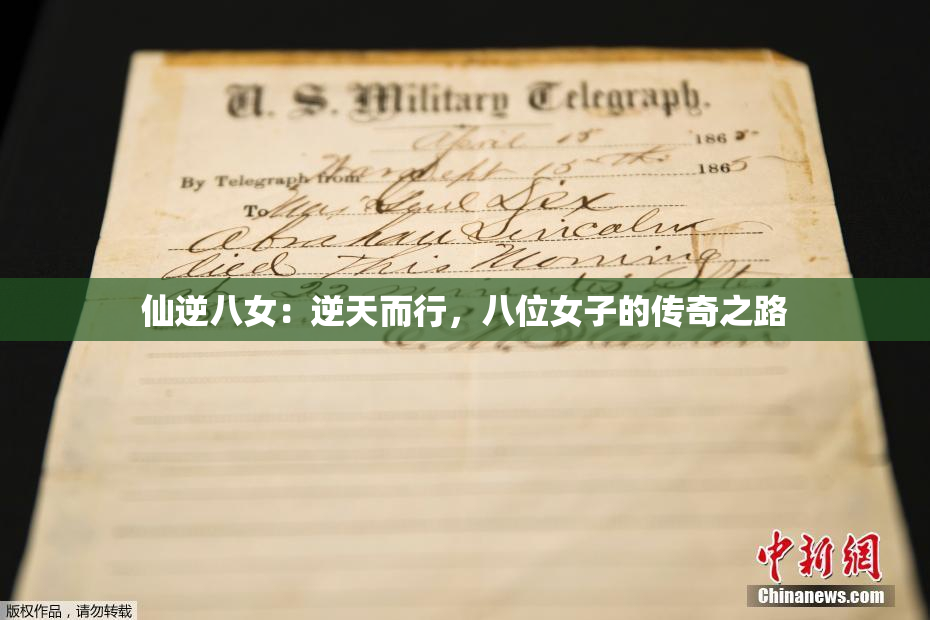 U. S. Military Telegraph.
April 15 1865
By Telegraph from War Dept 15th 1865
To Maj Genl Dix
Abraham Lincoln
died This Morning
at 22 minutes after
仙逆八女：逆天而行，八位女子的传奇之路
E. M. Stanton
中新网
Chinanews.com
版权作品，请勿转载